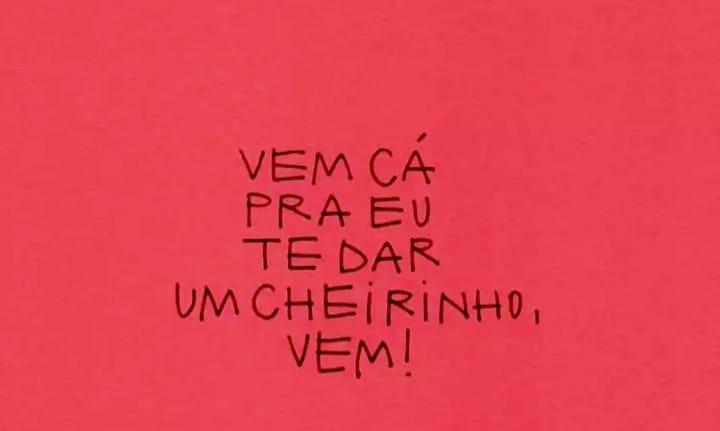 VEM CÁ
PRA EU
TE DAR
UM CHEIRINHO,
VEM!